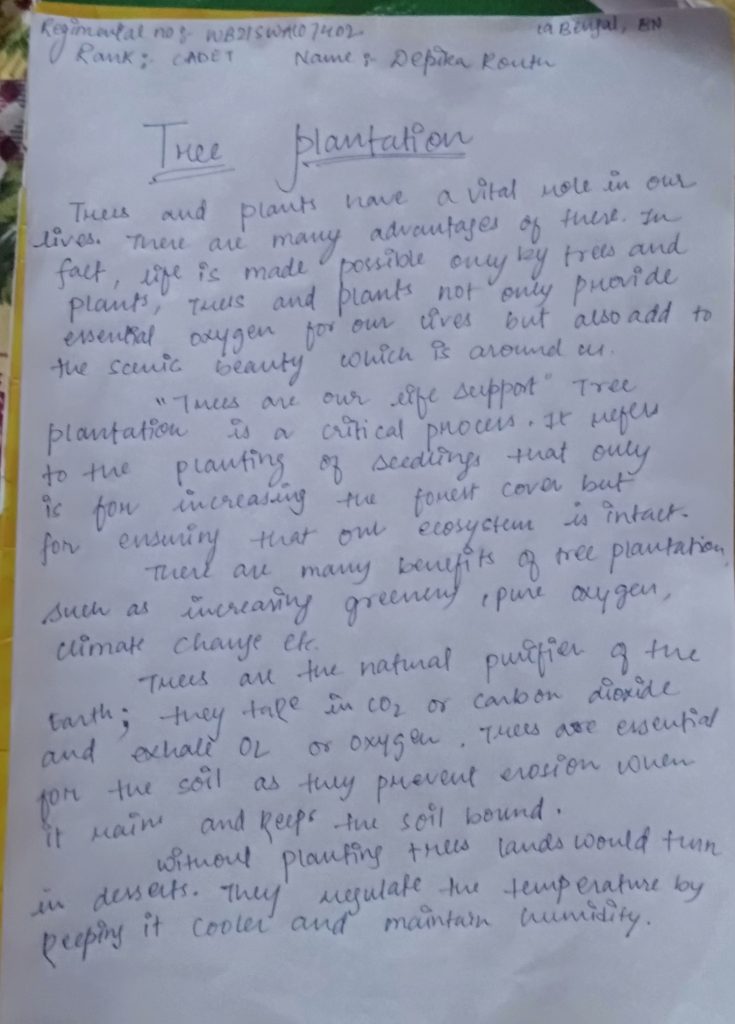 Regimental no :- WB21SWA107402
1a Bengal, BN
Rank :- CADET Name :- Depika Routh
Tree plantation
Trees and plants have a vital role in our
lives. There are many advantages of there. In
fact, life is made possible only by trees and
plants, Trees and plants not only provide
essential oxygen for our lives but also add to
the scenic beauty which is around us.
"Trees are our life support" Tree
plantation is a critical process. It refers
to the planting of seedlings that only
is for increasing the forest cover but
for ensuring that our ecosystem is intact.
There are many benefits of tree plantation,
such as increasing greenery, pure oxygen,
climate change etc.
Trees are the natural purifier of the
Earth; they take in CO2 or carbon dioxide
and exhale O2 or oxygen. Trees are essential
for the soil as they prevent erosion when
it rains and keeps the soil bound.
without planting trees lands would turn
in desserts. They regulate the temperature by
keeping it cooler and maintain humidity.